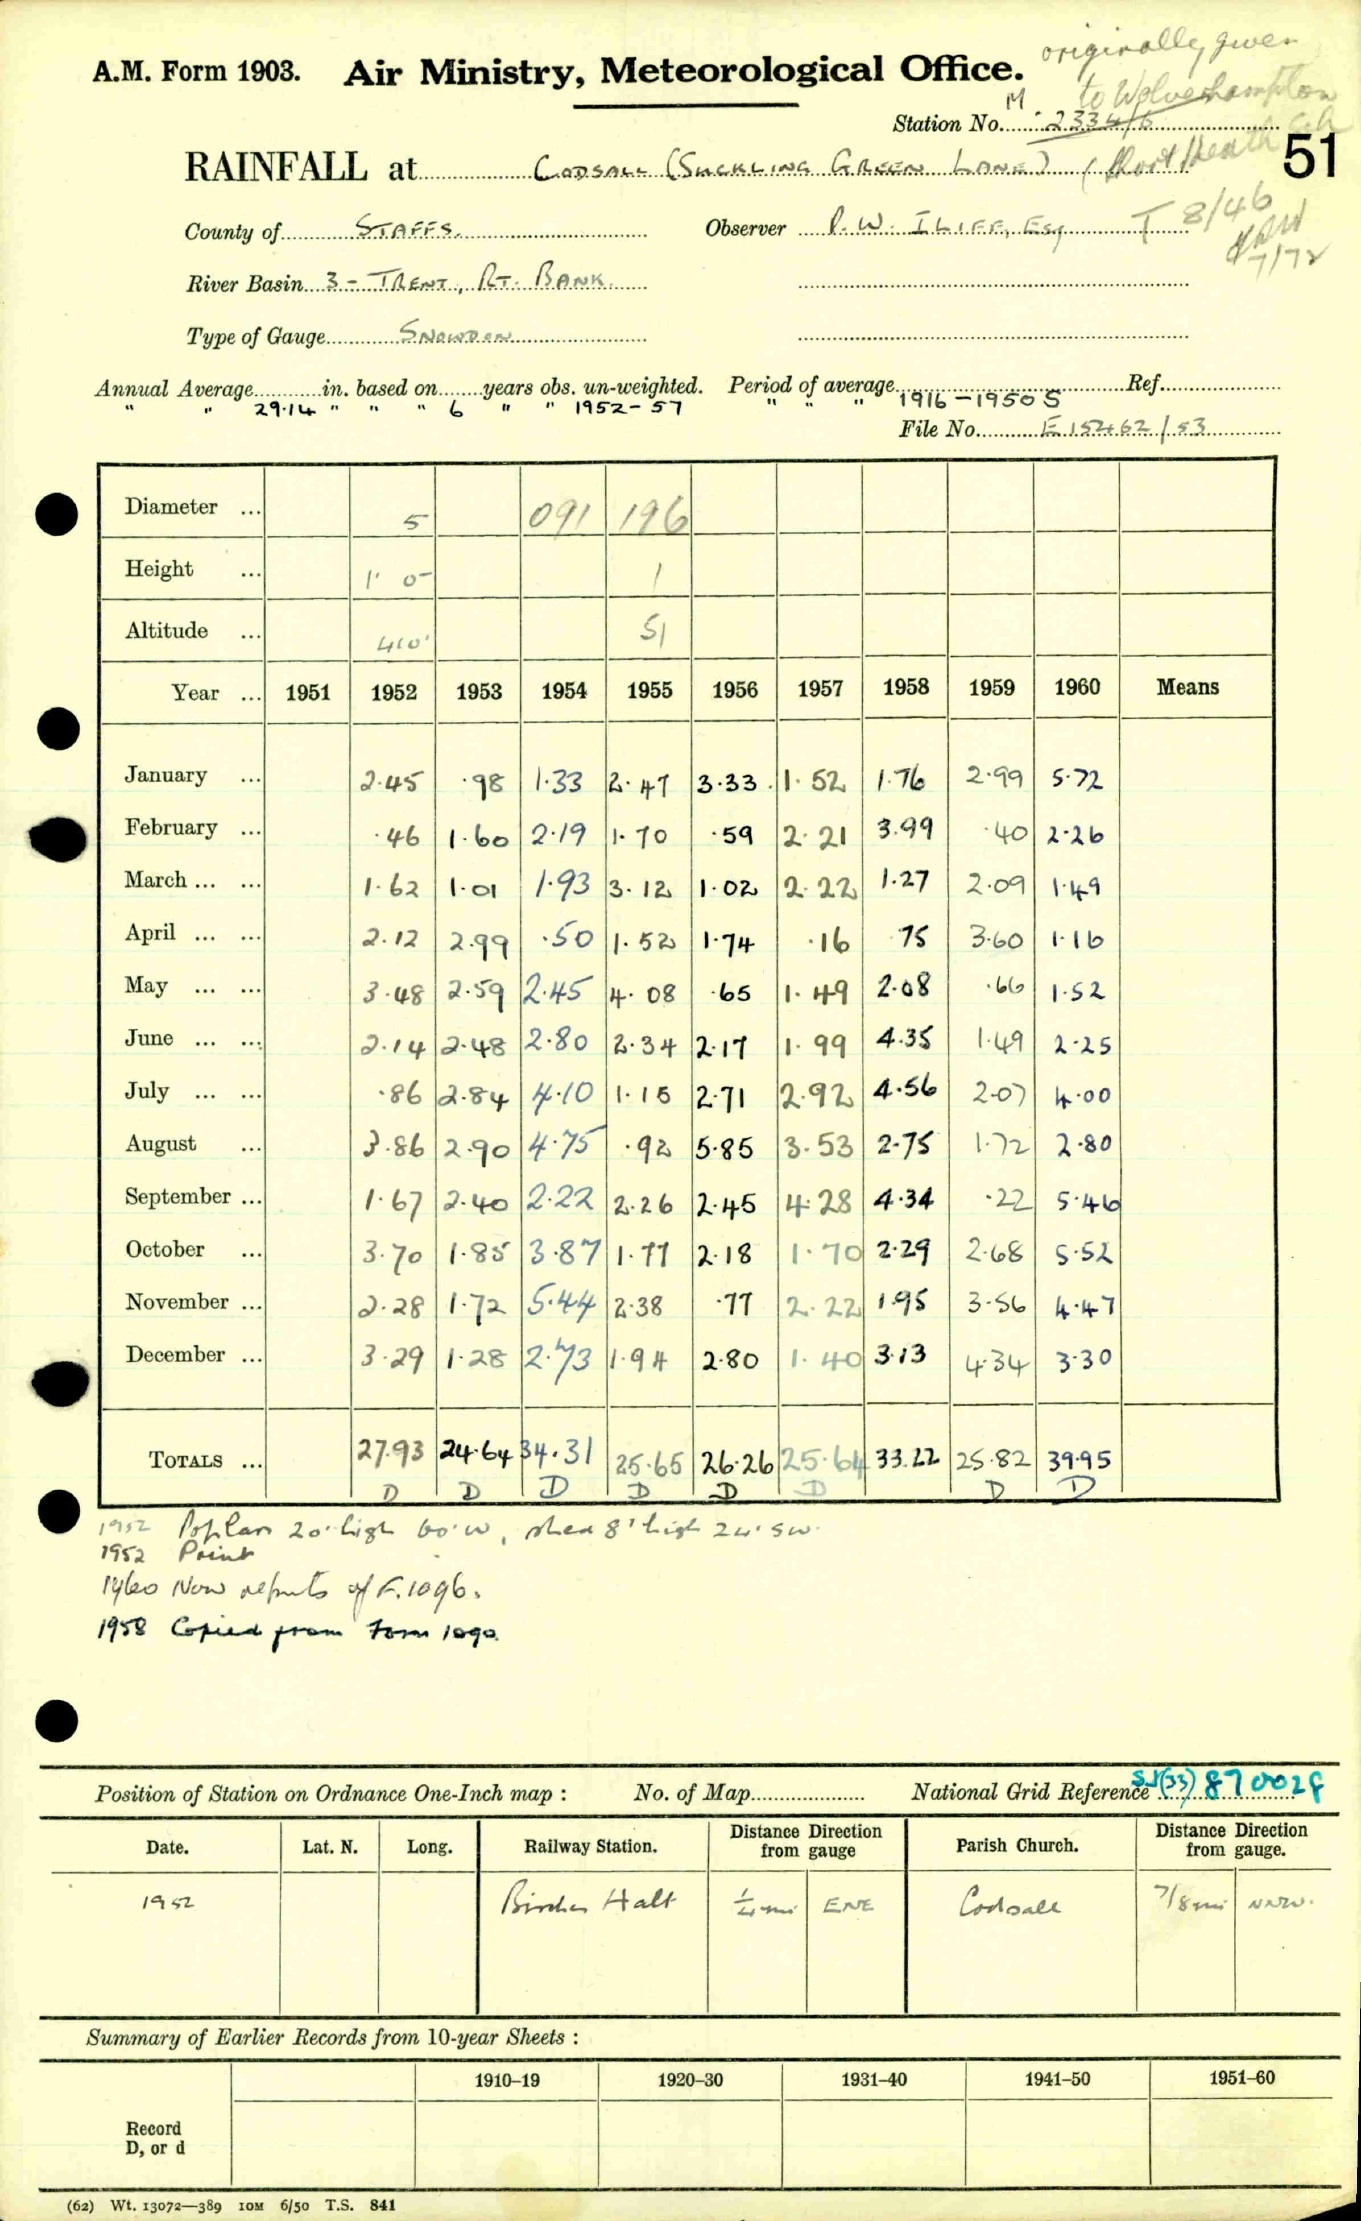 originally given
A.M. Form 1903. Air Ministry, Meteorological Office.
to Wolverhampton
M
Station No. 2334/6
RAINFALL at CODSALL (SUCKLING GREEN LANE) 51
County of STAFFS. Observer P. W. ILIFF, Esq T 8/46
7/72
River Basin 3 - TRENT, RT. BANK.
Type of Gauge SNOWDON
Annual Average in. based on years obs. un-weighted. Period of average Ref.
" " 29.14 " " " 6 " " 1952-57 " " " 1916-1950 S
File No. E 15462/53
Diameter ... 5 091 196
Height ... 1' 0" 1
Altitude ... 410' 51
Year ... 1951 1952 1953 1954 1955 1956 1957 1958 1959 1960 Means
January ... 2.45 .98 1.33 2.47 3.33 1.52 1.76 2.99 5.72
February ... .46 1.60 2.19 1.70 .59 2.21 3.99 .40 2.26
March ... ... 1.62 1.01 1.93 3.12 1.02 2.22 1.27 2.09 1.49
April ... ... 2.12 2.99 .50 1.52 1.74 .16 .75 3.60 1.16
May ... ... 3.48 2.59 2.45 4.08 .65 1.49 2.08 .66 1.52
June ... ... 2.14 2.48 2.80 2.34 2.17 1.99 4.35 1.49 2.25
July ... ... .86 2.84 4.10 1.15 2.71 2.92 4.56 2.07 4.00
August ... 3.86 2.90 4.75 .92 5.85 3.53 2.75 1.72 2.80
September ... 1.67 2.40 2.22 2.26 2.45 4.28 4.34 .22 5.46
October ... 3.70 1.85 3.87 1.77 2.18 1.70 2.29 2.68 5.52
November ... 2.28 1.72 5.44 2.38 .77 2.22 1.95 3.56 4.47
December ... 3.29 1.28 2.73 1.94 2.80 1.40 3.13 4.34 3.30
TOTALS ... 27.93 24.64 34.31 25.65 26.26 25.64 33.22 25.82 39.95
D D D D D D D D
1952 Poplars 20' high 60' W, shed 8' high 24' SW.
1952 Point
1960 Now reports of F.1096.
1958 Copied from Form 1090.
Position of Station on Ordnance One-Inch map : No. of Map National Grid Reference SJ(33) 870028
Date. Lat. N. Long. Railway Station. Distance Direction from gauge Parish Church. Distance Direction from gauge.
1952 Birches Halt 1/4 mi ENE Codsall 7/8 mi NNW.
Summary of Earlier Records from 10-year Sheets :
1910–19 1920–30 1931–40 1941–50 1951–60
Record
D, or d
(62) Wt. 13072—389 10M 6/50 T.S. 841